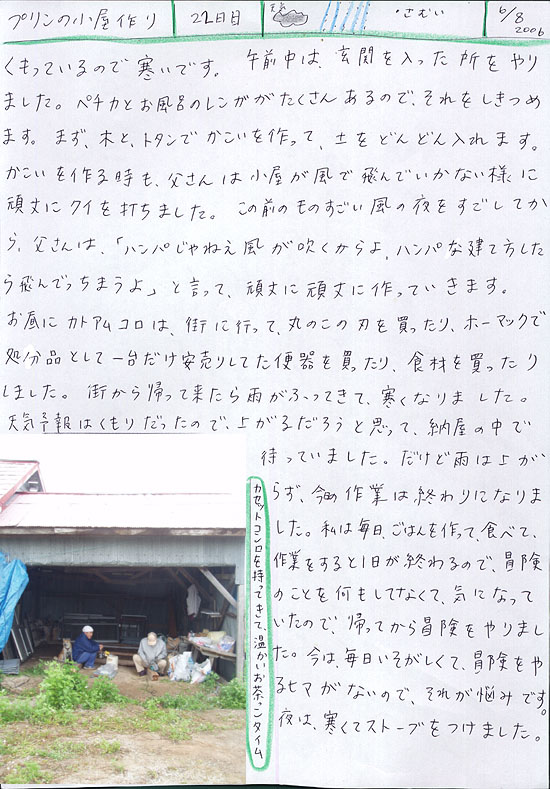 プリンの小屋作り 22日目 さむい 6/8 2006
くもっているので寒いです。午前中は、玄関を入った所をやり
ました。ペチカとお風呂のレンガがたくさんあるので、それをしきつめ
ます。まず、木と、トタンでかこいを作って、土をどんどん入れます。
かこいを作る時も、父さんは小屋が風で飛んでいかない様に
頑丈にクイを打ちました。この前のものすごい風の夜をすごしてか
ら、父さんは、「ハンパじゃねえ風が吹くからよ、ハンパな建て方した
ら飛んでっちまうよ」と言って、頑丈に頑丈に作っていきます。
お昼にカトアムコロは、街に行って、丸のこの刃を買ったり、ホーマックで
処分品として一台だけ安売りしてた便器を買ったり、食材を買ったり
しました。街から帰って来たら雨がふってきて、寒くなりました。
天気予報はくもりだったので、上がるだろうと思って、納屋の中で
待っていました。だけど雨は上が
らず、今日の作業は終わりになりま
した。私は毎日、ごはんを作って、食べて、
作業をすると1日が終わるので、冒険
のことを何もしてなくて、気になって
いたので、帰ってから冒険をやりまし
た。今は、毎日いそがしくて、冒険をや
るヒマがないので、それが悩みです。
夜は、寒くてストーブをつけました。
カセットコンロを持ってきて、温かいお茶っこタイム